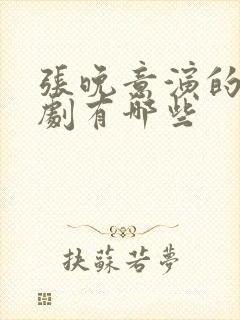 張晚意演的
劇有哪些
扶蘇若夢